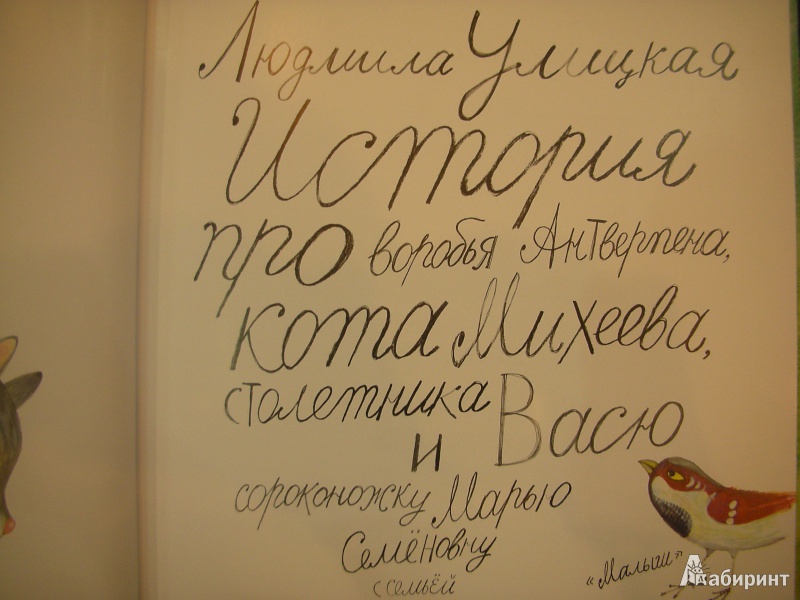 Людмила Улицкая
История
про воробья Антверпена,
кота Михеева,
столетника Васю
и
сороконожку Марью
Семёновну
с семьёй
«Малыш»
Лабиринт